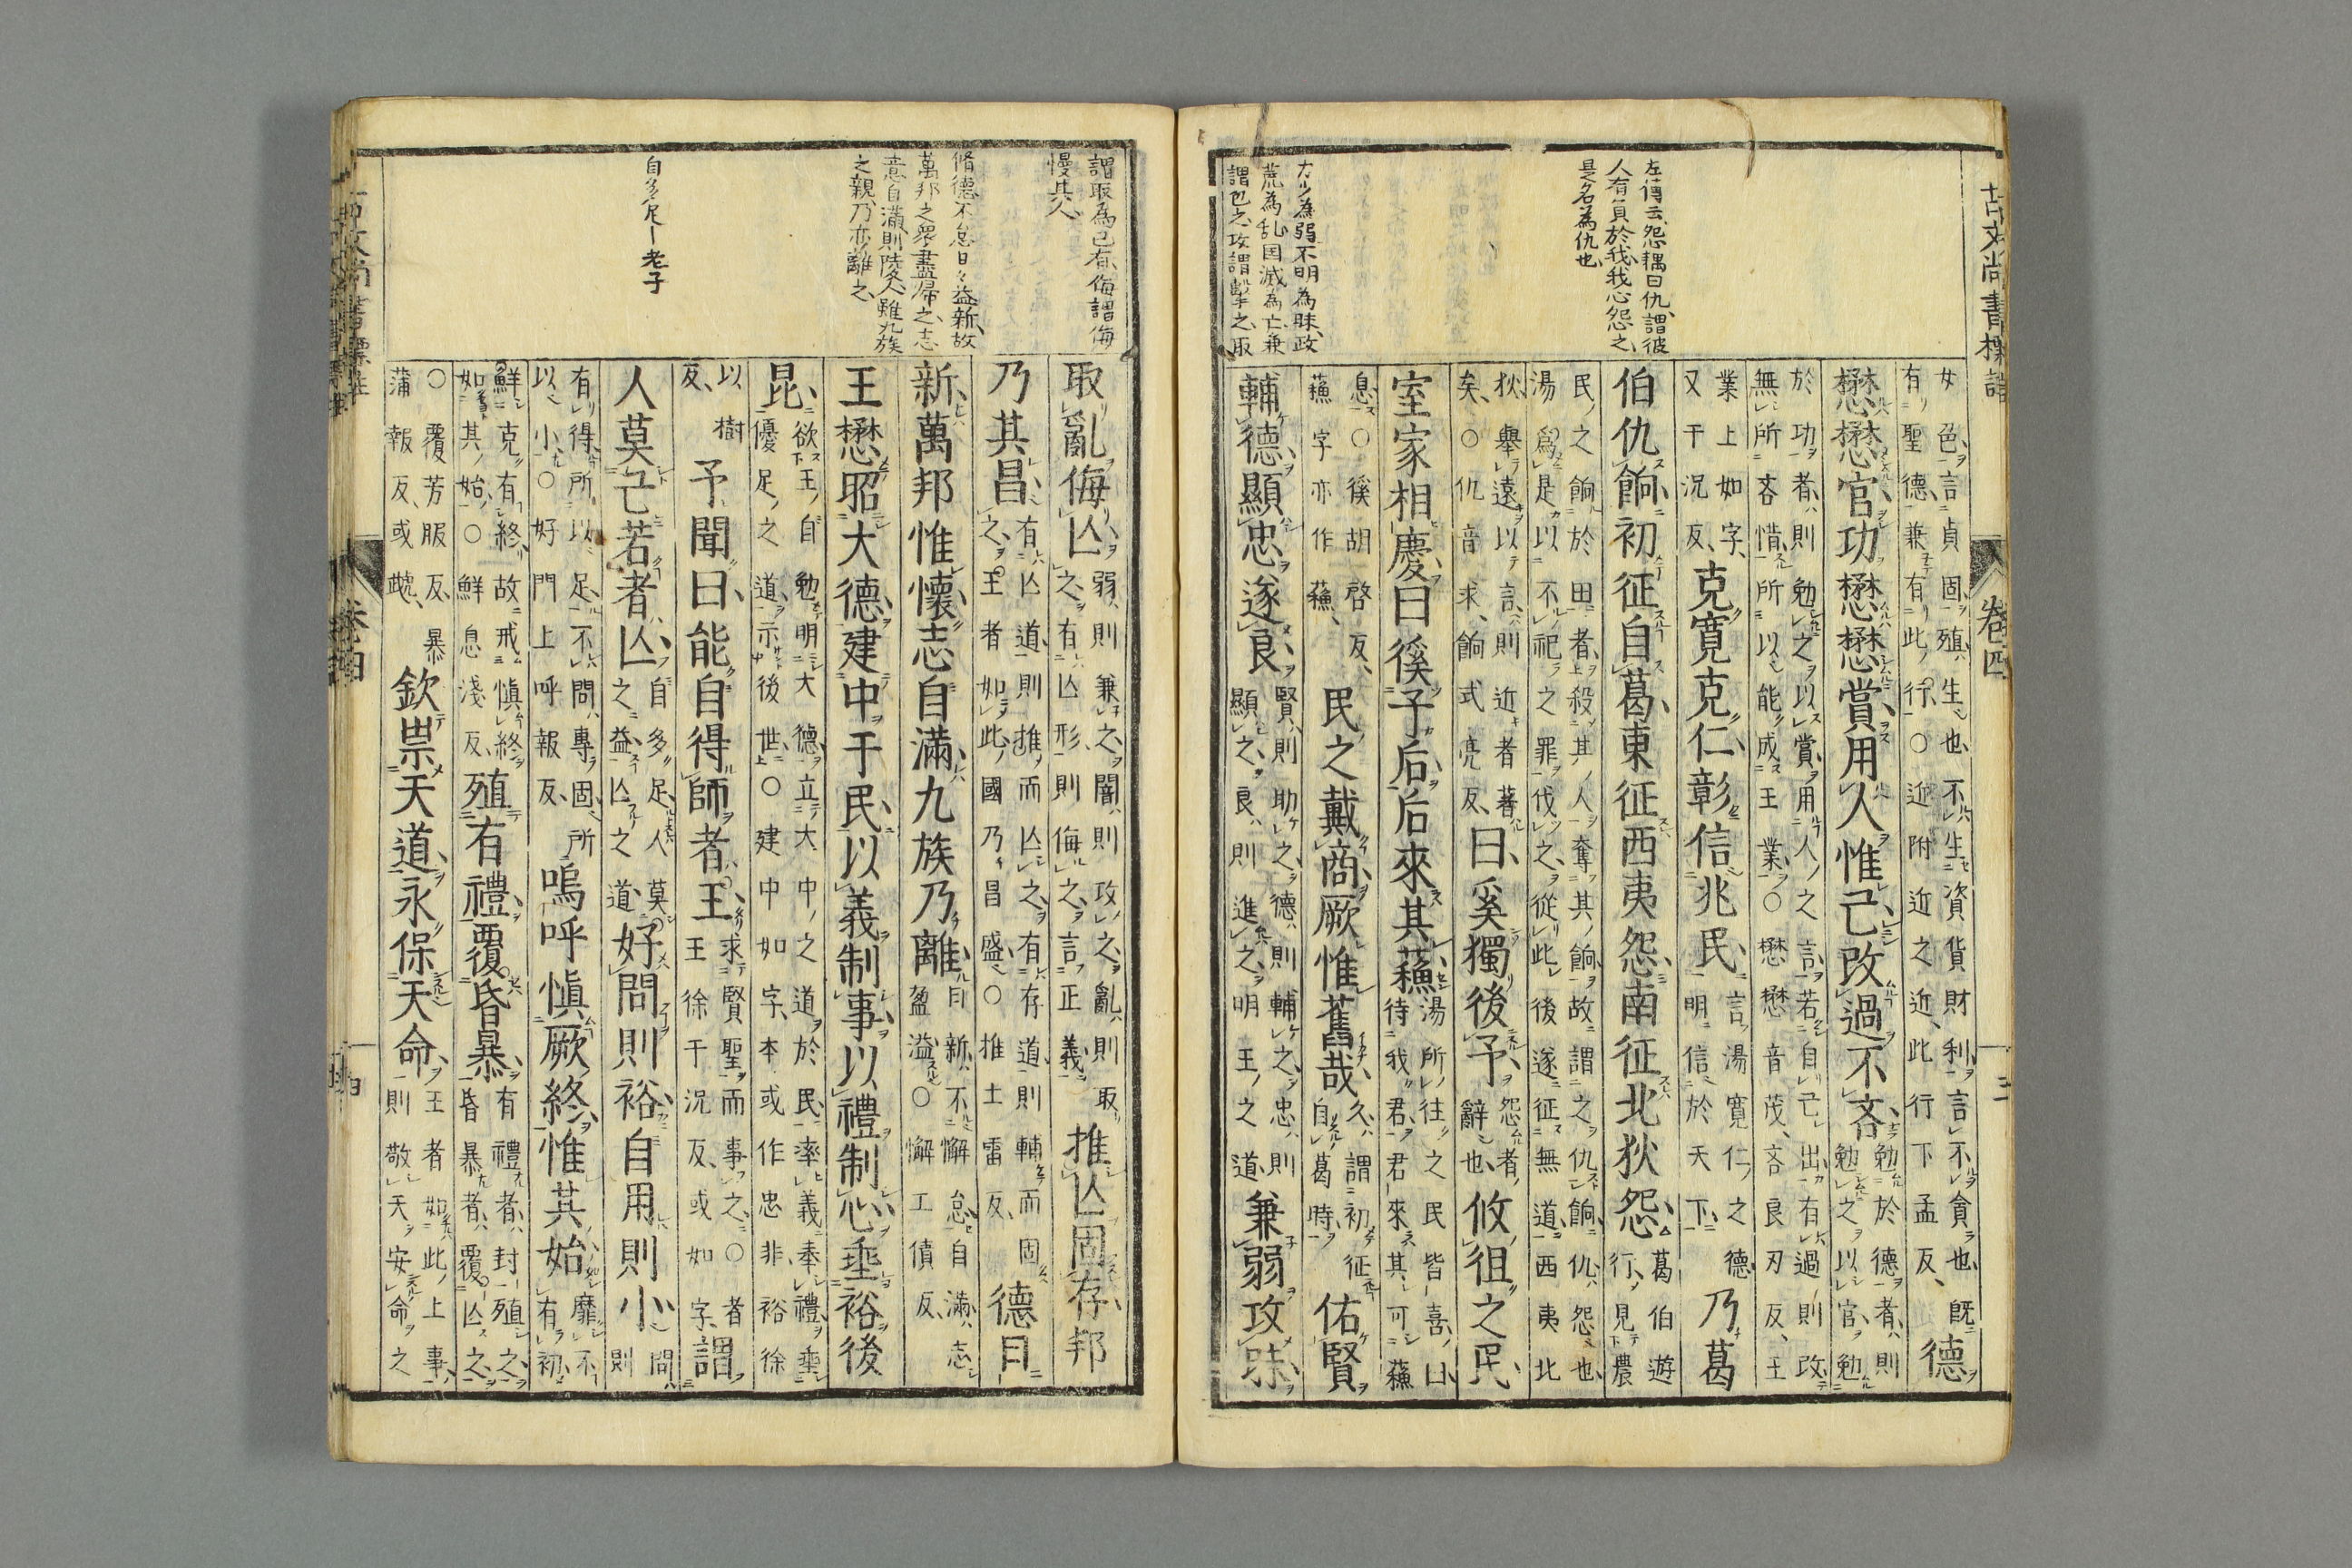 古文尚書標註 卷四 三
左傳云、怨耦曰仇、謂彼
人有負於我、我心怨之、
是名為仇也
力少為弱、不明為昧、政
荒為乱、国滅為亡、兼
謂包之、攻謂擊之、取
女色、言貞固、殖生也、不生資貨財利、言不貪也、既
有聖德、兼有此行、○近附近之近、此行下孟反、
德
懋懋官、功懋懋賞、用人惟己、改過不吝、
勉於德者、則
勉之以官、勉
於功者、則勉之以賞、用人之言、若自己出、有過則改
無所吝惜、所以能成王業、○懋懋音茂、吝良刃反、王
業上如字、
又干況反、
克寬克仁、彰信兆民、
言湯寬仁之德
明信於天下、
乃葛
伯仇餉、初征自葛、東征西夷怨、南征北狄怨、
葛伯遊
行、見農
民之餉於田者、殺其人、奪其餉、故謂之仇餉、仇怨也、
湯爲是以不祀之罪伐之、從此後遂征無道、西夷北
狄、舉遠以言、則近者著
矣、○仇音求、餉式亮反、
曰、奚獨後予、
怨者
辭也、
攸徂之民、
室家相慶、曰徯予后、后來其蘓、
湯所往之民皆喜、曰
待我君、君來其可蘓
息、○徯胡啓反、
蘓字亦作蘓、
民之戴商、厥惟舊哉、
久謂初征
自葛時、
佑賢
輔德、顯忠遂良、
賢則助之、德則輔之、忠則
顯之、良則進之、明王之道
兼弱攻昧、
謂取為己有、侮謂侮
慢其人
脩德不怠、日々益新、故
萬邦之衆盡歸之、志
意自滿、則陵人、雖九族
之親、乃亦離之、
自多足ー老子
取亂侮亾、
弱則兼之、闇則攻之、亂則取
之、有亾形則侮之、言正義、
推亾固存、邦
乃其昌、
有亾道、則推而亾之、有存道、則輔而固
之、王者如此、國乃昌盛、○推土雷反、
德日
新、萬邦惟懷、志自滿、九族乃離、
日新、不懈怠、自滿、志
盈溢、○懈工債反、
王懋昭大德、建中于民、以義制事、以禮制心、垂裕後
昆、
欲王自勉明大德、立大中之道於民、率義奉禮、垂
優足之道示後世、○建中如字、本或作忠非、裕徐
以樹
反、
予聞曰、能自得師者王、
求賢聖而事之、○
王徐于況反、或如字、
者
謂
人莫己若者亾、
自多足、人莫
之益、亾之道、
好問則裕、自用則小、
問
則
有得、所以足、不問專固、所
以小、○好門上呼報反、
嗚呼、愼厥終、惟其始、
靡不
有初、
鮮克有終、故戒愼終
如其始、○鮮息淺反、
殖有禮、覆昏暴、
有禮者、封殖之、
昏暴者、覆亾之、
○覆芳服反、暴
蒲報反、或虣、
欽崇天道、永保天命、
王者如此上事、
則敬天安命之
卷四